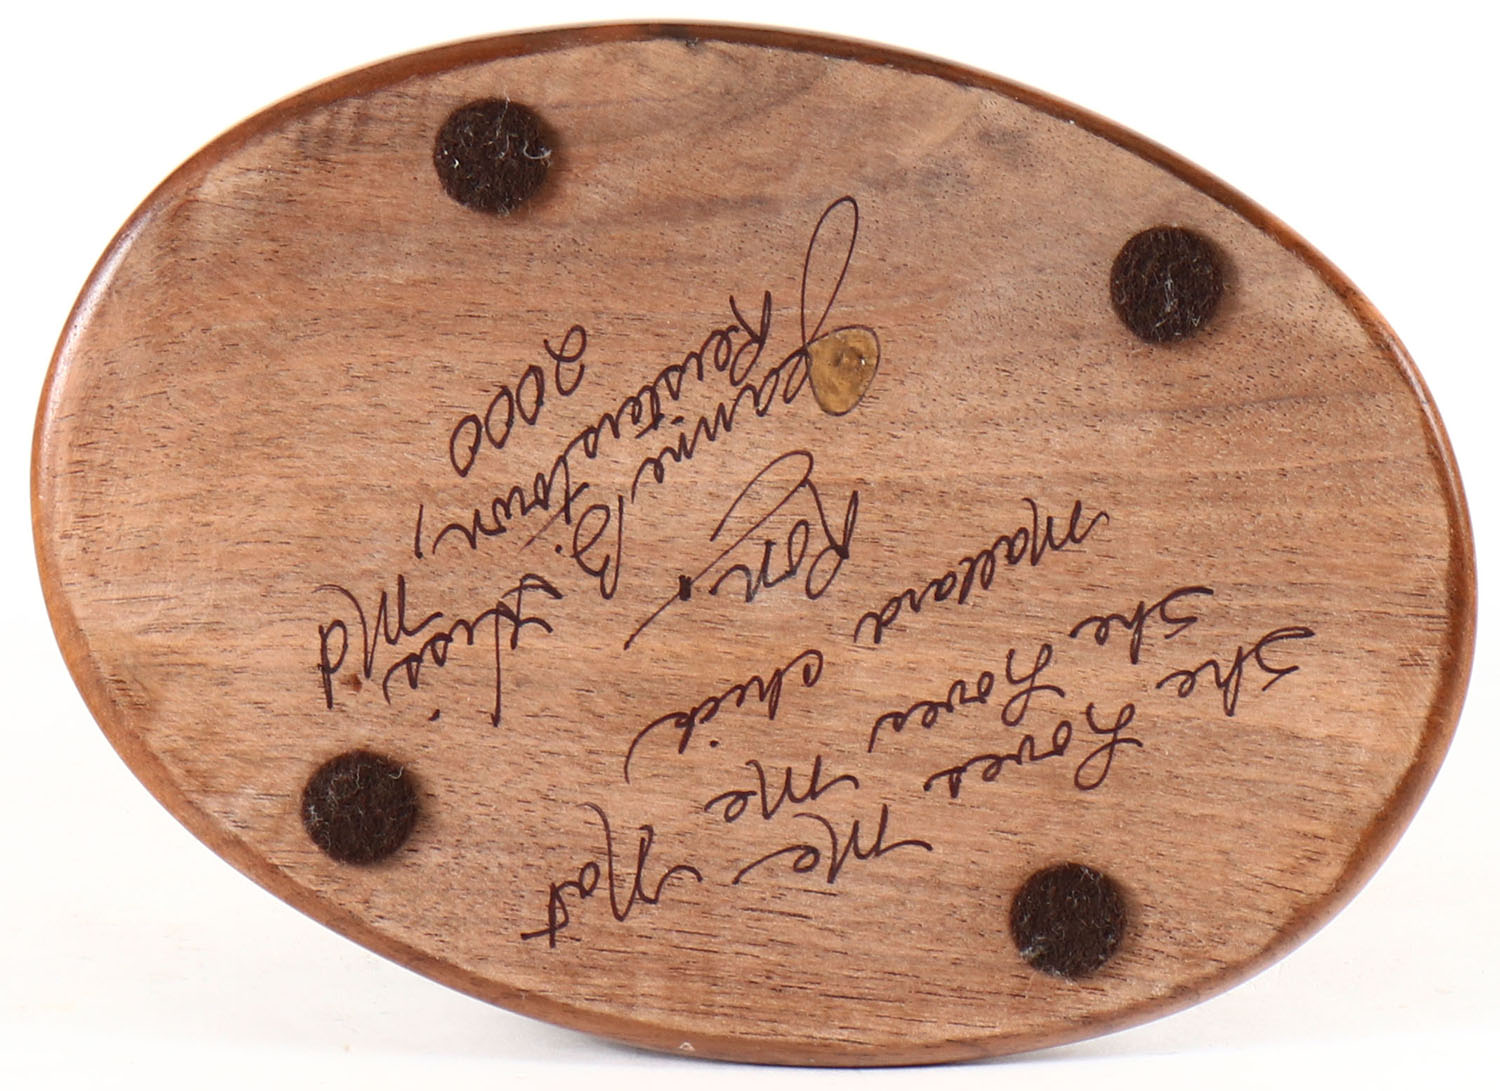 She Loves Me Not
She Loves Me
Mallard chick
Ron
Jeanine B.
Reisterstown, Md
2000